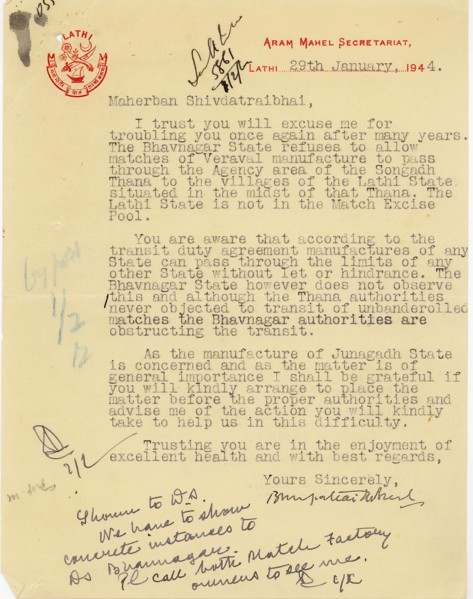 LATHI
ARAM MAHEL SECRETARIAT,
LATHI 29th January, 1944.
5861
2/2
Maherban Shivdatraibhai,
I trust you will excuse me for
troubling you once again after many years.
The Bhavnagar State refuses to allow
matches of Veraval manufacture to pass
through the Agency area of the Songadh
Thana to the villages of the Lathi State
situated in the midst of that Thana. The
Lathi State is not in the Match Excise
Pool.
You are aware that according to the
transit duty agreement manufactures of any
State can pass through the limits of any
other State without let or hindrance. The
Bhavnagar State however does not observe
this and although the Thana authorities
never objected to transit of unbanderolled
matches the Bhavnagar authorities are
obstructing the transit.
As the manufacture of Junagadh State
is concerned and as the matter is of
general importance I shall be grateful if
you will kindly arrange to place the
matter before the proper authorities and
advise me of the action you will kindly
take to help us in this difficulty.
Trusting you are in the enjoyment of
excellent health and with best regards,
Yours Sincerely,
by post
1/2
2/2
Shown to D.S.
We have to show
concrete instances to
Ds Bhavnagar.
Pl call both Match Factory
owners to see me.
2/2